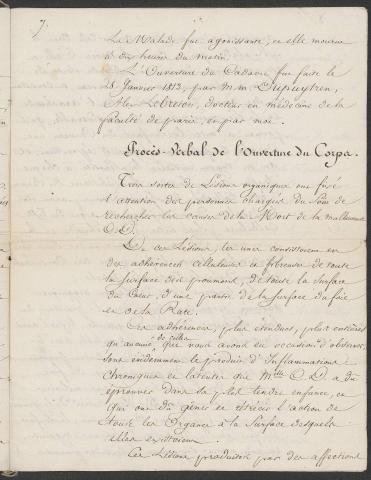 7.
La Malade fut agonissante, et elle mourut
à dix heures du matin.
L'Ouverture du Cadavre fut faite le
28 Janvier 1813, par M.M. Dupuytren,
Alex Lebreton, docteur en médecine de la
faculté de paris, et par moi.
Procès-Verbal de l'Ouverture du Corps.
Trois sortes de Lésions organiques ont fixé
l'attention des personnes chargées du soin de
rechercher les causes de la Mort de la malheureuse
O.D.
De ces Lésions, les unes consistoient en
des adhérences celluleuses et fibreuses de toute
la surface des poumons, de toute la surface
du Cœur, d'une partie de la surface du foie
et de la Rate.
Ces adhérences, plus étendues, plus entières
qu'aucune de celles que nous avons eu occasion d'observer,
sont évidemment le produit d'Inflammations
chroniques et latentes que Mlle O.D a dû
éprouver dans sa plus tendre enfance, et
qui ont dû gêner et rétrécir l'action de
tous les Organes à la surface desquels
elles existoient.
Ces Lésions produites par des affections